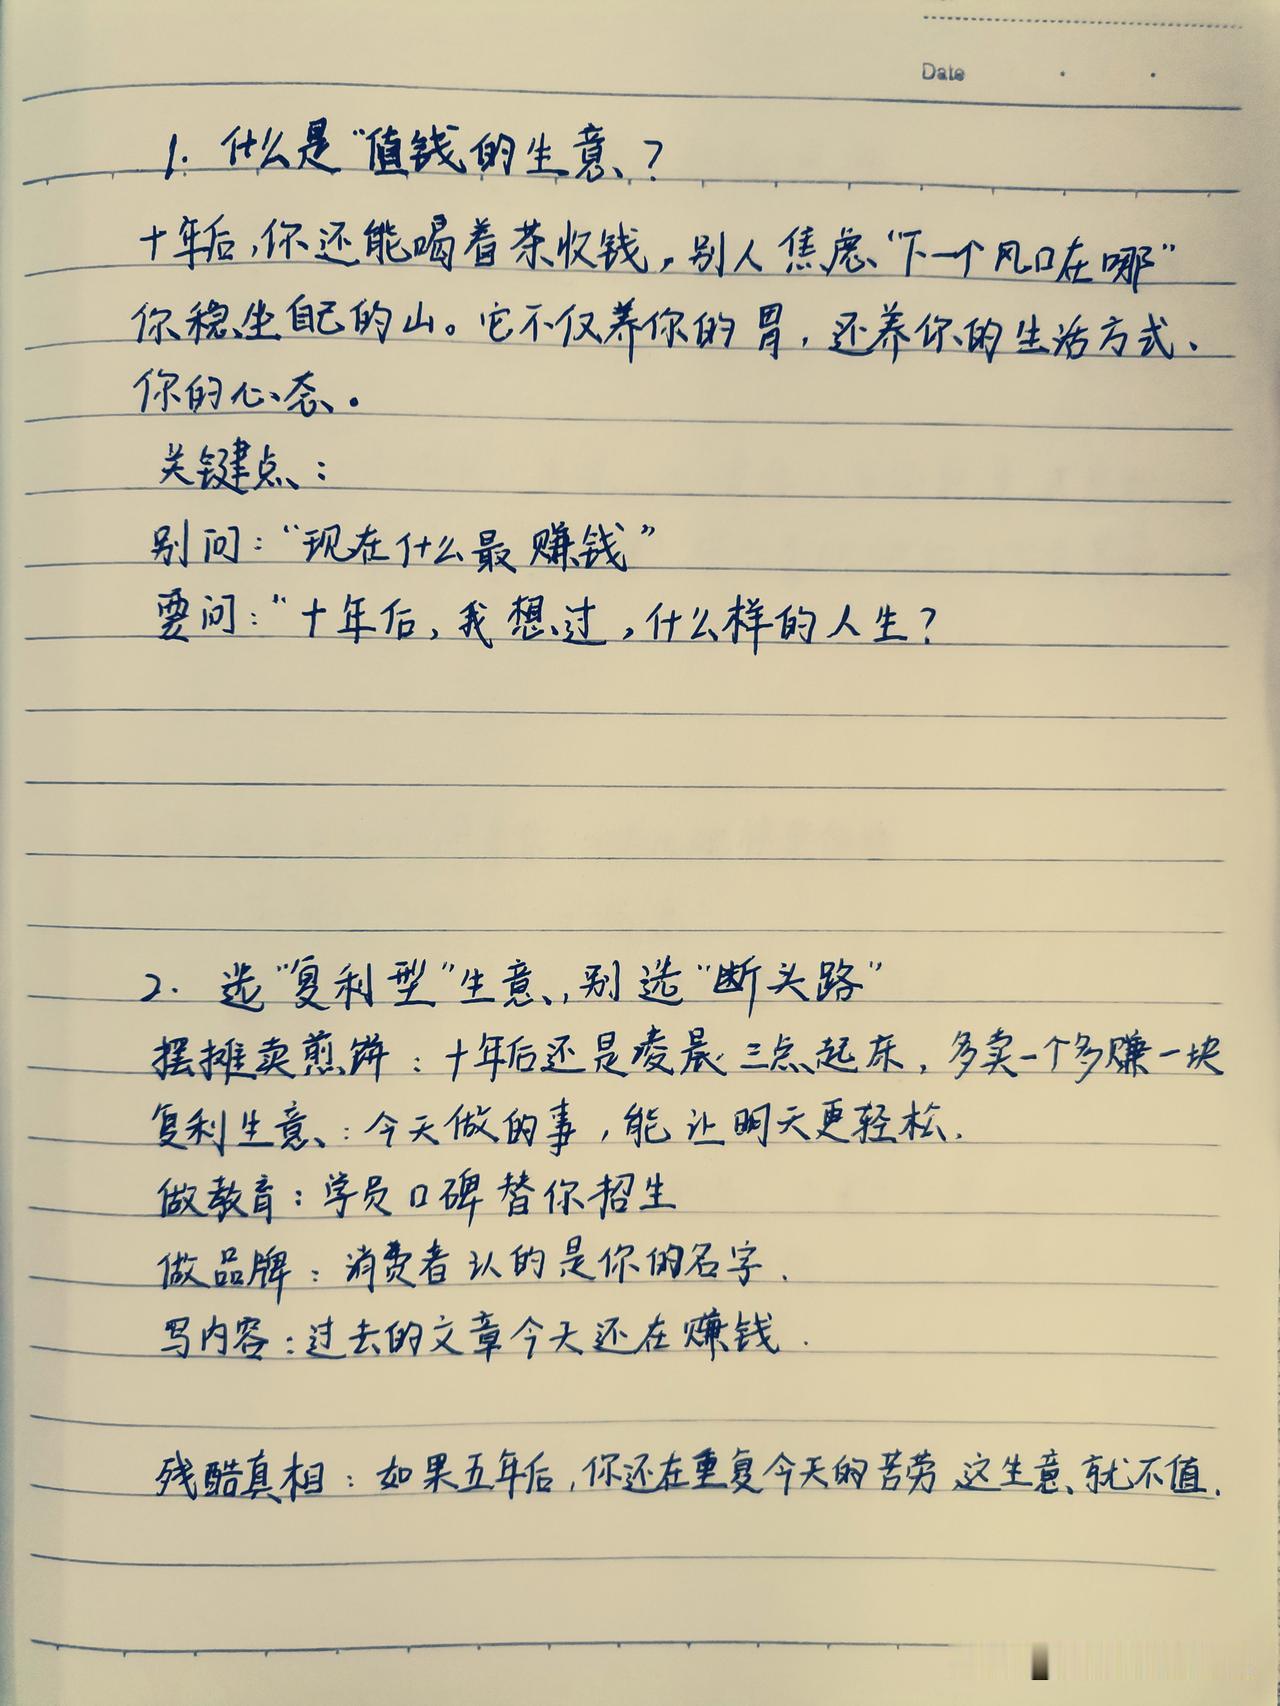 Date
1. 什么是“值钱的生意、?
十年后,你还能喝着茶收钱,别人焦虑“下一个风口在哪”
你稳坐自己的山。它不仅养你的胃,还养你的生活方式、
你的心态。
关键点:
别问:“现在什么最赚钱”
要问:“十年后,我想过,什么样的人生?
2. 选“复利型”生意,别选“断头路”
摆摊卖煎饼:十年后还是凌晨三点起床,多卖一个多赚一块
复利生意:今天做的事,能让明天更轻松.
做教育:学员口碑替你招生
做品牌:消费者认的是你的名字.
写内容:过去的文章今天还在赚钱.
残酷真相:如果五年后,你还在重复今天的苦劳,这生意就不值.